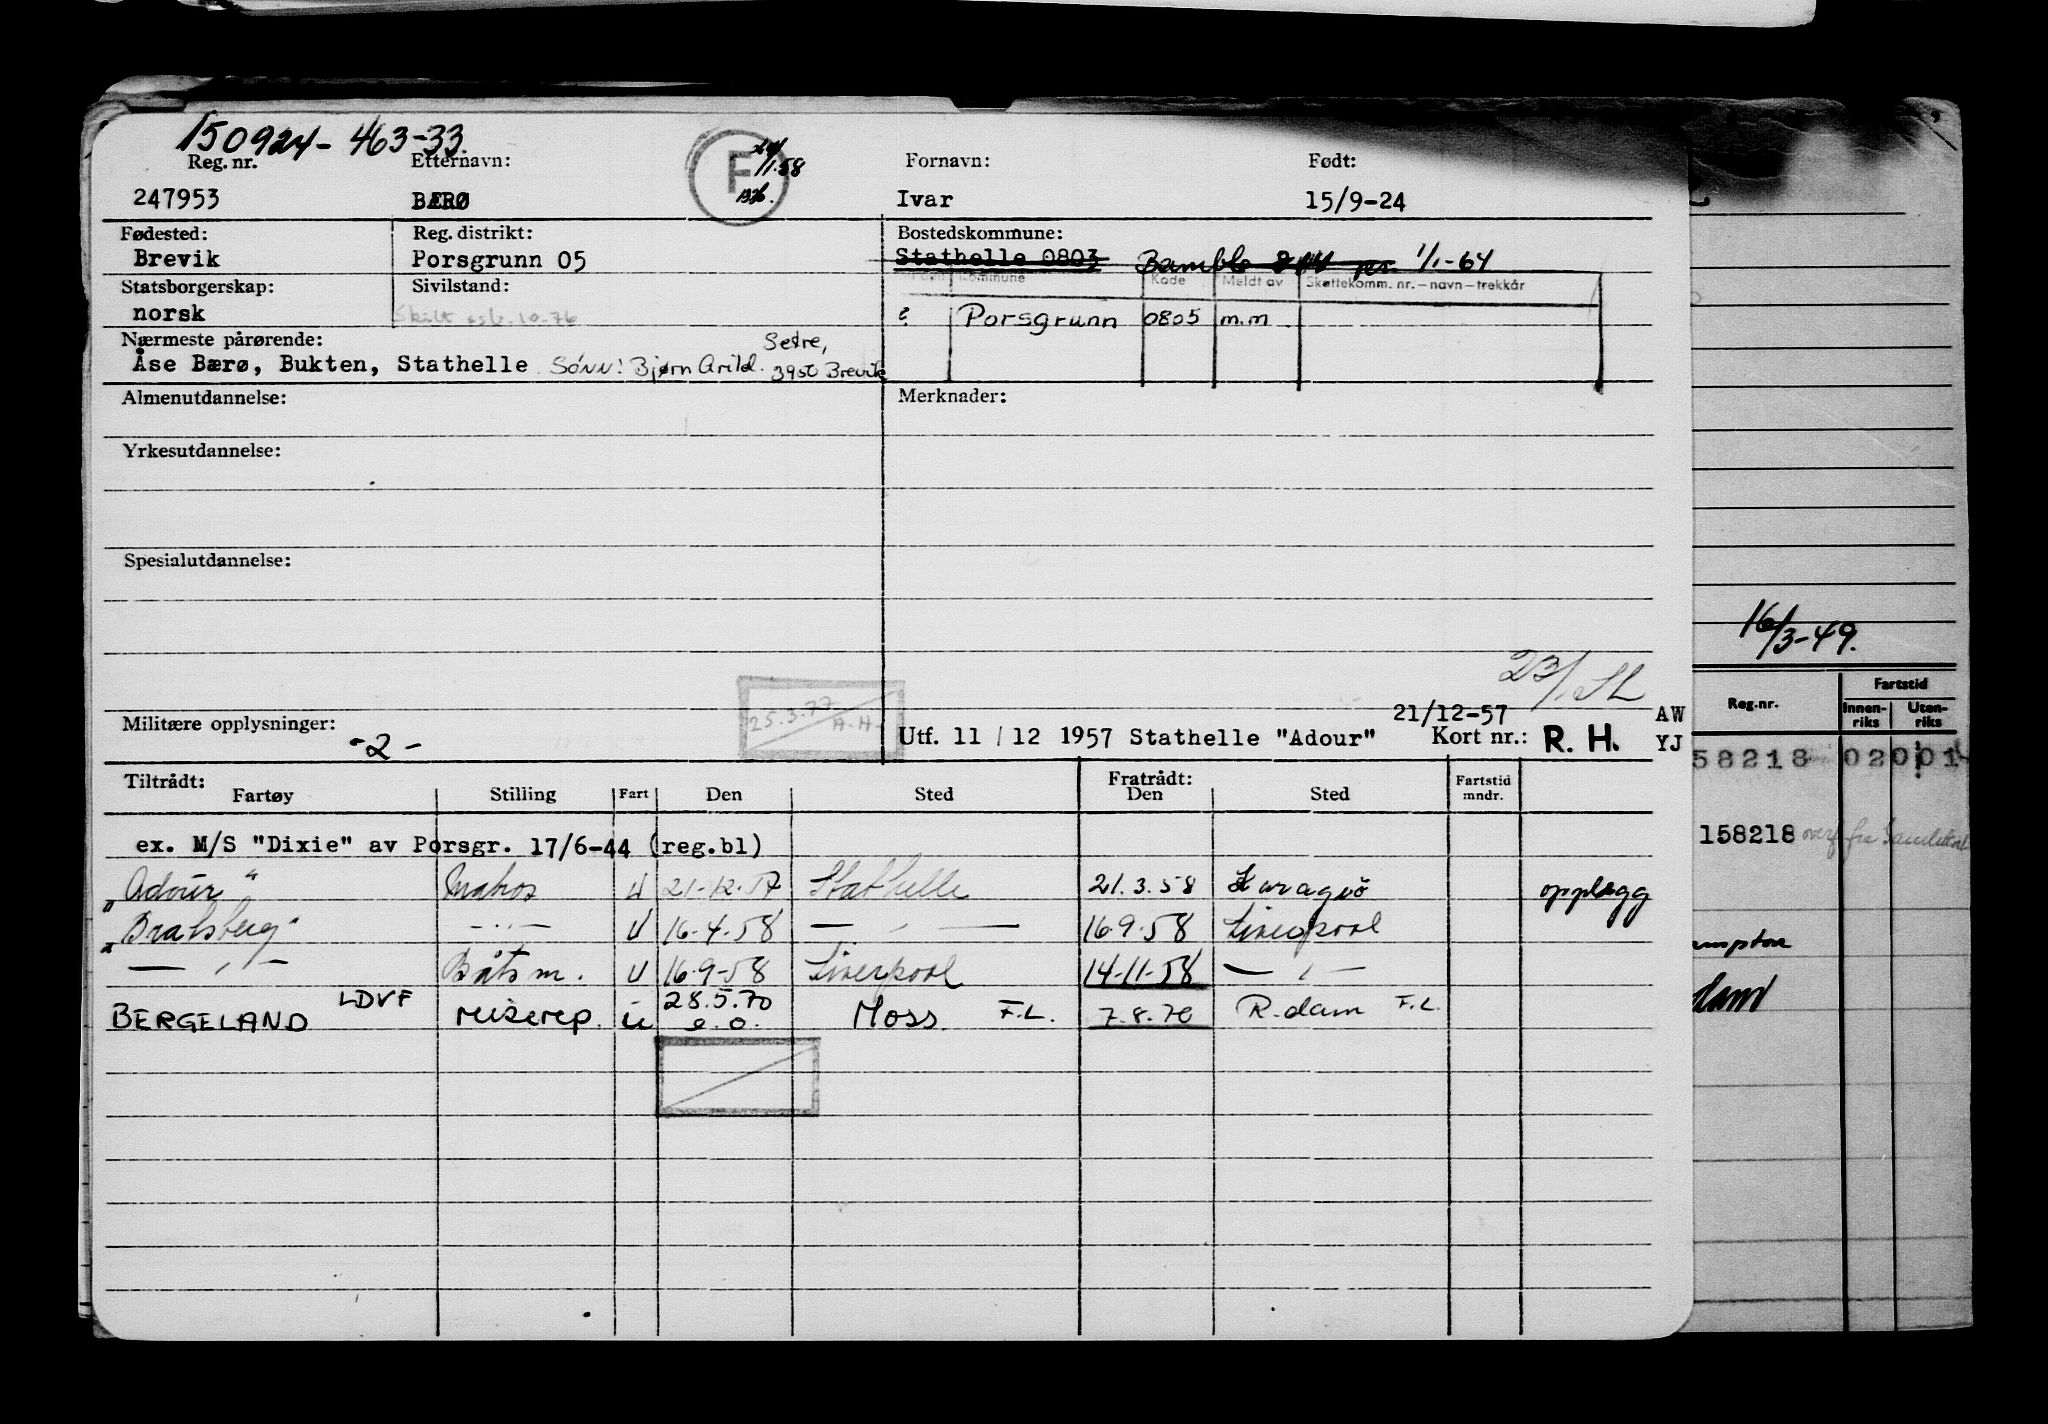 150924-463-33.
Reg. nr. Etternavn: F 24/1.58 Fornavn: Født:
247953 BÆRØ Ivar 15/9-24
Fødested: Reg. distrikt: Bostedskommune:
Brevik Porsgrunn 05 Stathelle 0803 Bamble 814 pr. 1/1-64
Statsborgerskap: Sivilstand: Kommune Kode Meldt av Skattekomm. nr.-navn-trekkår
norsk Skilt 10-76 ? Porsgrunn 0805 m.m
Nærmeste pårørende: Setre,
Åse Bærø, Bukten, Stathelle Sønn: Bjørn Arild. 3950 Brevik
Almenutdannelse: Merknader:
Yrkesutdannelse:
Spesialutdannelse:
16/3-49.
23/1. SL
Fartstid
25.3.77 A.H.
Reg.nr. Innen-riks Uten-riks
Militære opplysninger: 21/12-57 AW
-2- Utf. 11 / 12 1957 Stathelle "Adour" Kort nr.: R. H. YJ
58218 02001
Tiltrådt: Fratrådt:
Fartøy Stilling Fart Den Sted Den Sted Fartstid mndr.
ex. M/S "Dixie" av Porsgr. 17/6-44 (reg.bl) 158218 overf fra
"Adour" Matros U 21-12-57 Stathelle 21.3.58 opplagg
"Bratsberg" -"- U 16-4-58 -"- 16.9.58 Liverpool
-"- Båtsm. U 16-9-58 Liverpool 14-11-58 -"-
BERGELAND LDVF reiserep. u 28.5.70 e.o. Moss F.L. 7.8.70 R.dam F.L.